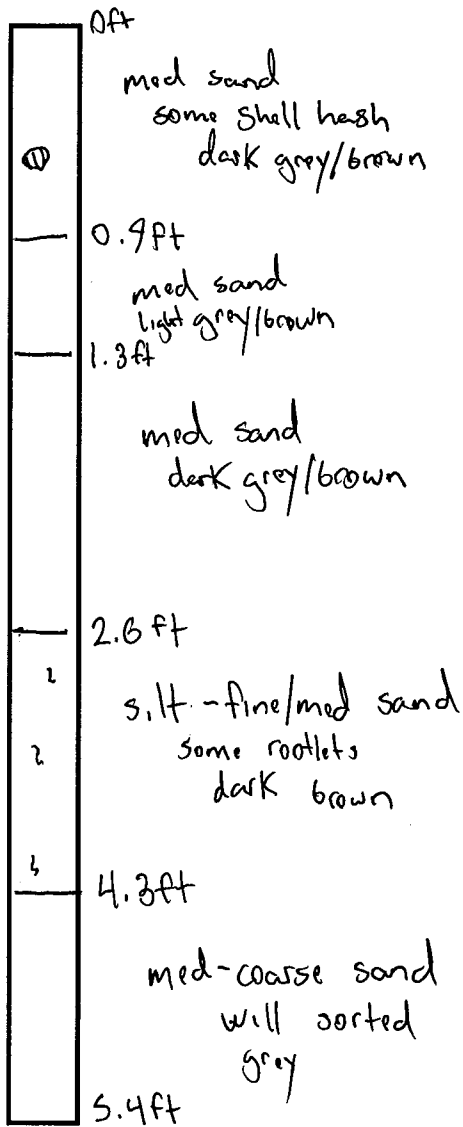 0ft
med sand
some shell hash
dark grey/brown
0.9ft
med sand
light grey/brown
1.3ft
med sand
dark grey/brown
2.6ft
silt-fine/med sand
some rootlets
dark brown
4.3ft
med-coarse sand
will sorted
grey
5.4ft